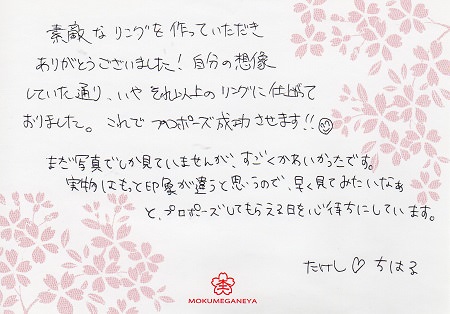 素敵なリングを作っていただき
ありがとうございました！自分の想像
していた通り、いやそれ以上のリングに仕上がって
おりました。これでプロポーズ成功させます!!
まだ写真でしか見ていませんが、すごくかわいかったです。
実物はもっと印象が違うと思うので、早く見てみたいなぁ
と、プロポーズしてもらえる日を心待ちにしています。
たけし♡ちはる
MOKUMEGANEYA